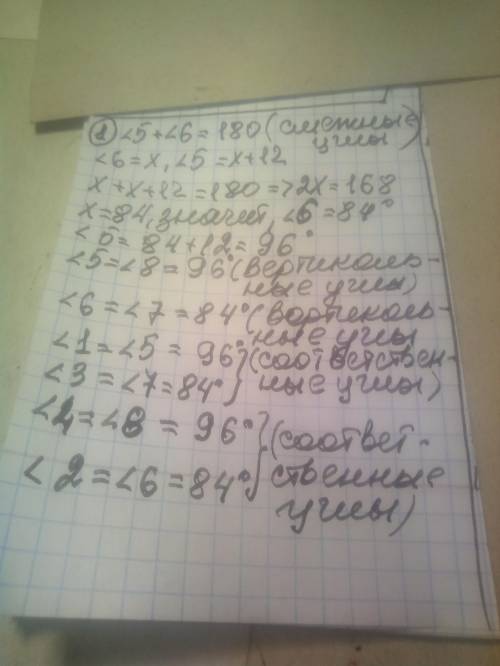 ① ∠5+∠6=180 (смежные
углы)
∠6=x, ∠5=x+12
x+x+12=180=>2x=168
x=84, значит, ∠6=84°
∠5=84+12=96°
∠5=∠8=96° (вертикаль-
ные углы)
∠6=∠7=84° (вертикаль-
ные углы
∠1=∠5=96° } (соответствен-
∠3=∠7=84° } ные углы)
∠4=∠8=96° } (соответ-
∠2=∠6=84° } ственные
углы)